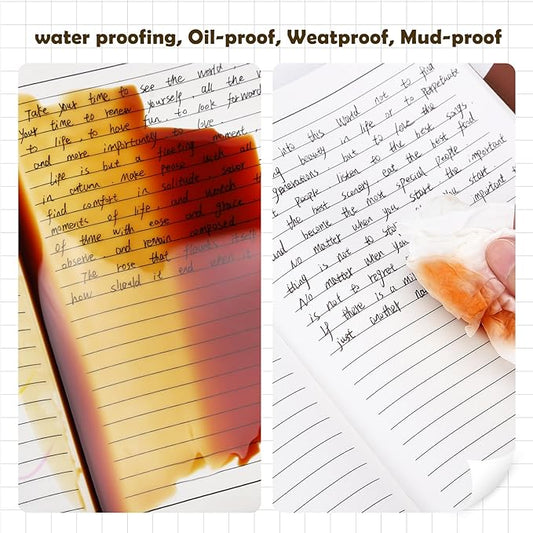 water proofing, Oil-proof, Weatproof, Mud-proof
Take your time to see the world,
your time to renew yourself, all the
to life, to have fun, to look forward
and more importantly to love
Life is but a fleeting moment,
in autumn. Make peace with all
find comfort in solitude, savor
moments of life, and
of time with ease and grace
observe and remain composed
The rose that flaunts itself
how should it end when it
into this world not to find
beauty in life or to perpetuate
generations but to love the
people listen to the best songs
the best scenery eat the best food
and become the most special people
No matter when you start the important
thing is not to
No matter when you start
is not to regret
If there is a
just another
You start
important to